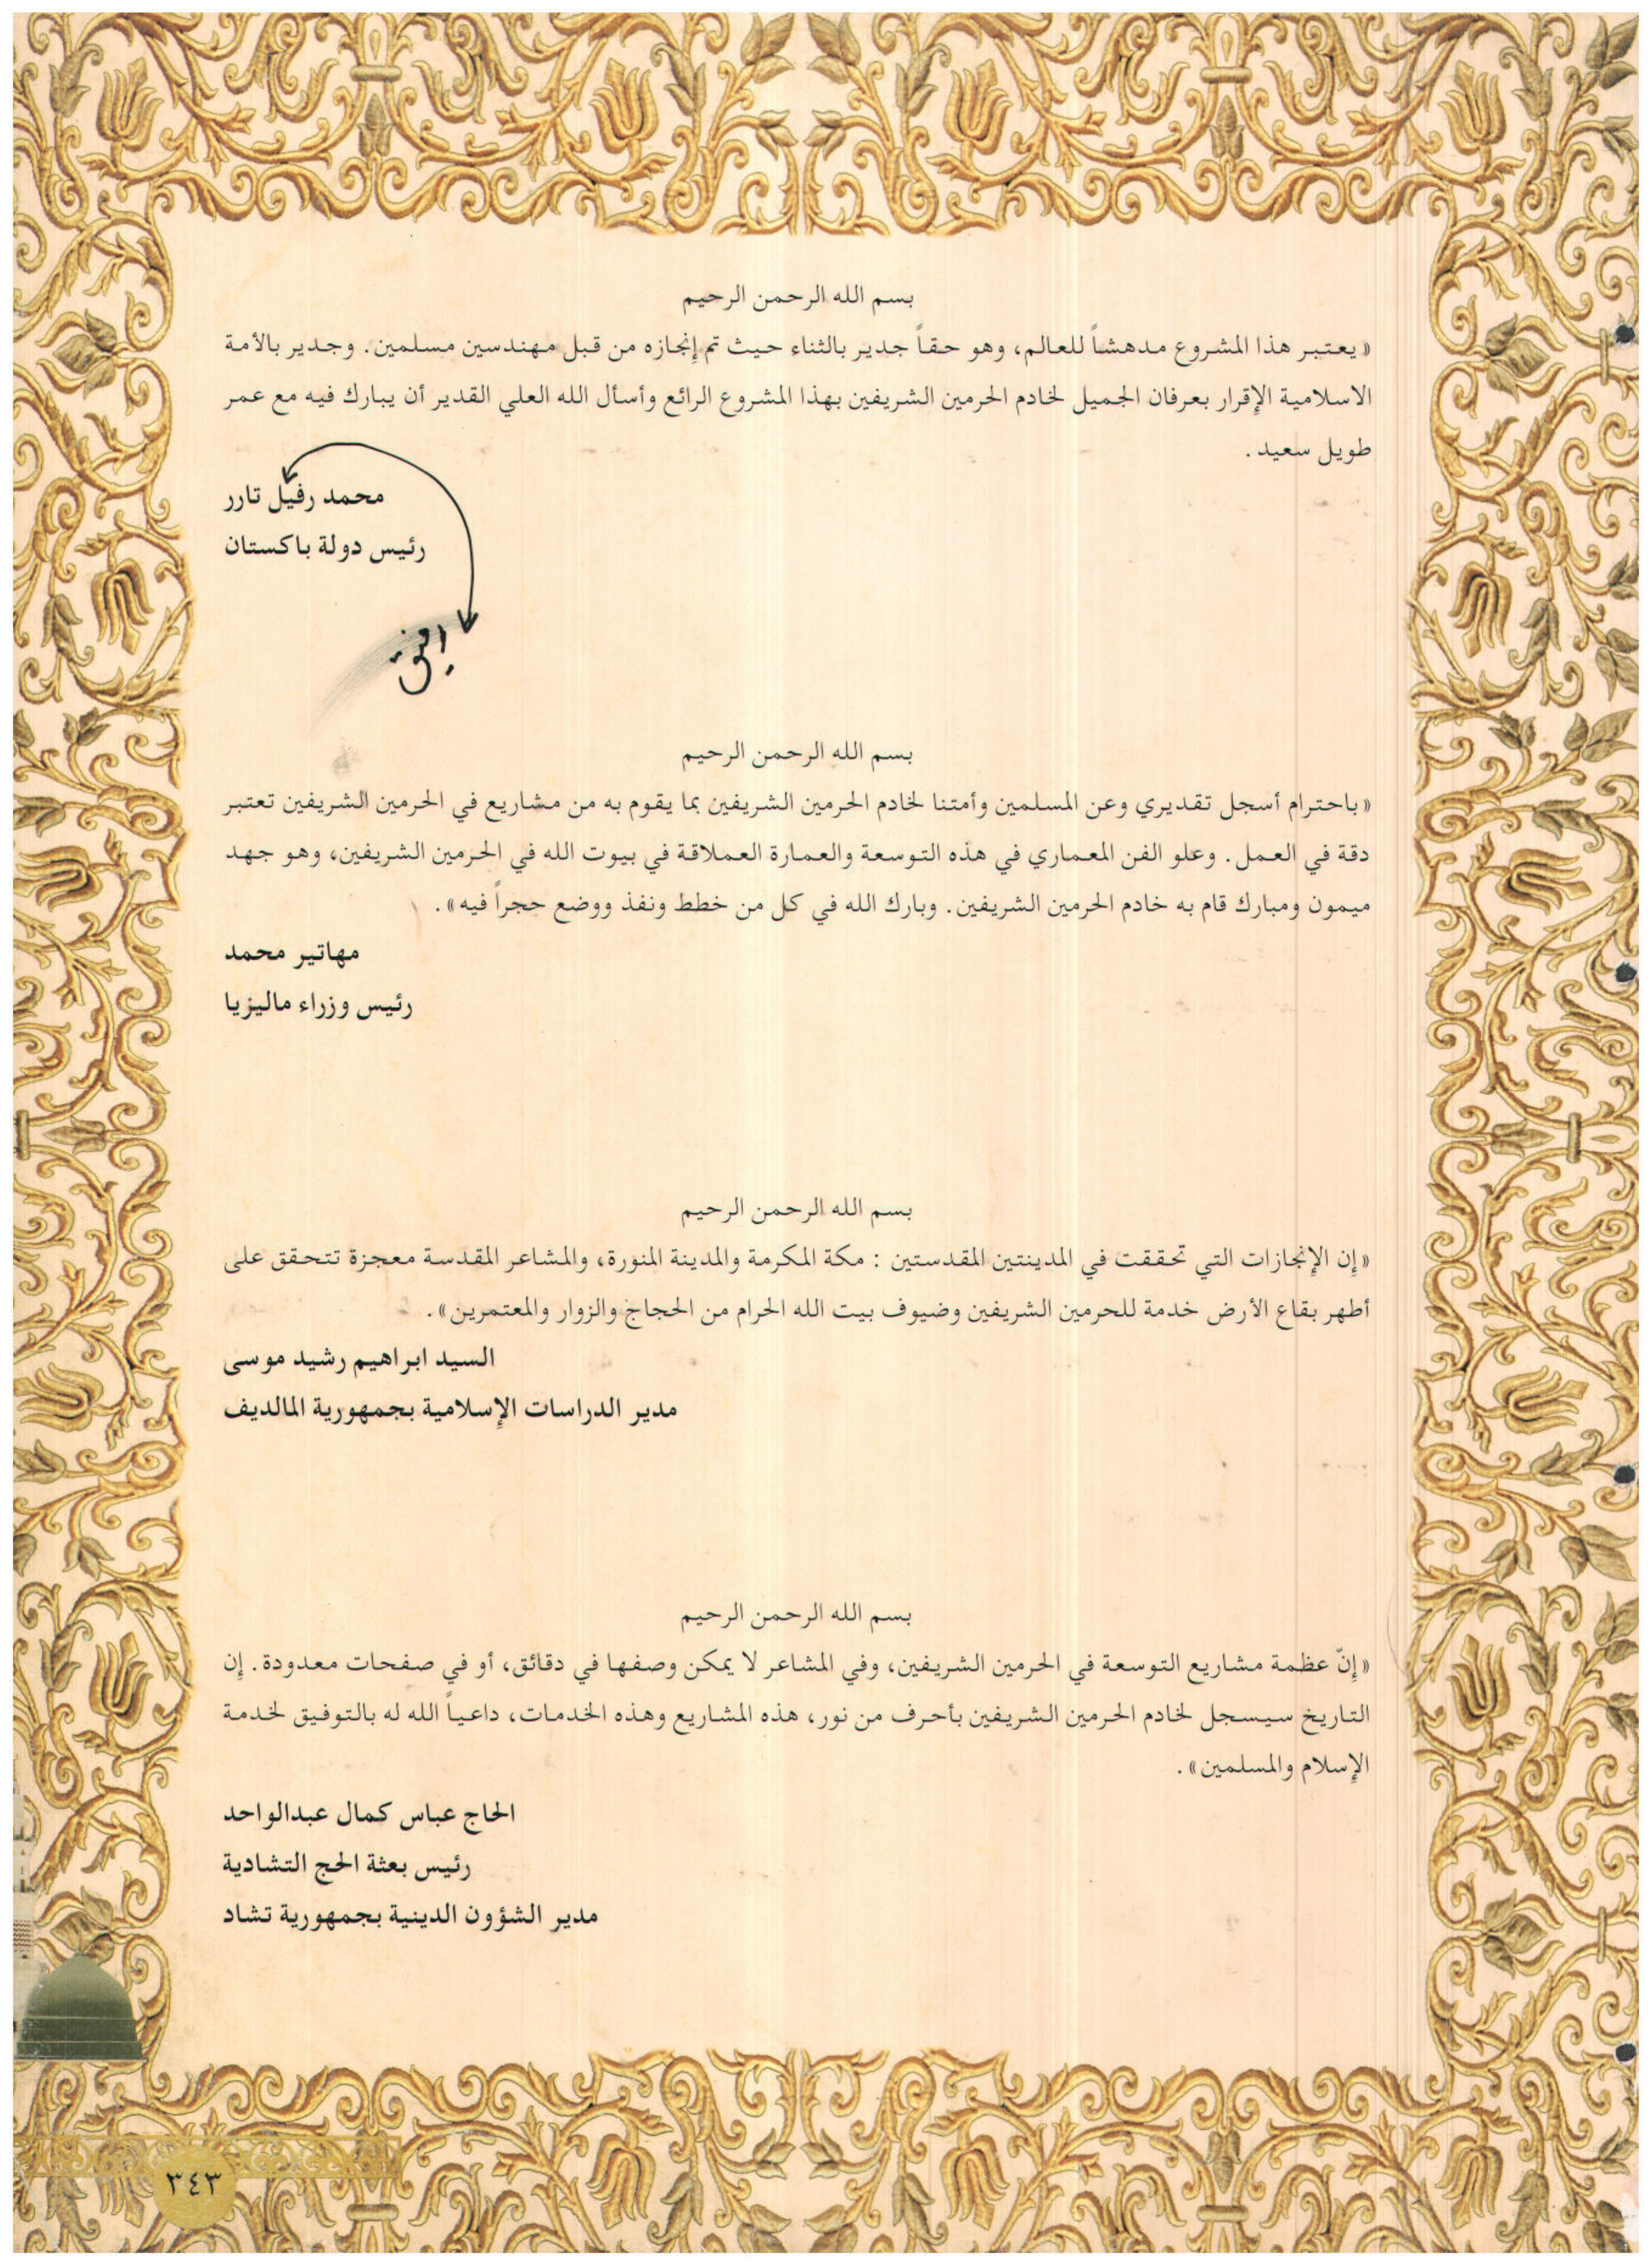 بسم الله الرحمن الرحيم
«يعتبر هذا المشروع مدهشاً للعالم، وهو حقاً جدير بالثناء حيث تم إنجازه من قبل مهندسين مسلمين. وجدير بالأمة
الاسلامية الإقرار بعرفان الجميل لخادم الحرمين الشريفين بهذا المشروع الرائع وأسأل الله العلي القدير أن يبارك فيه مع عمر
طويل سعيد .
محمد رفيل تارر
رئيس دولة باكستان
رفيق
بسم الله الرحمن الرحيم
«باحترام أسجل تقديري وعن المسلمين وأمتنا لخادم الحرمين الشريفين بما يقوم به من مشاريع في الحرمين الشريفين تعتبر
دقة في العمل. وعلو الفن المعماري في هذه التوسعة والعمارة العملاقة في بيوت الله في الحرمين الشريفين، وهو جهد
ميمون ومبارك قام به خادم الحرمين الشريفين. وبارك الله في كل من خطط ونفذ ووضع حجراً فيه».
مهاتير محمد
رئيس وزراء ماليزيا
بسم الله الرحمن الرحيم
«إن الإنجازات التي تحققت في المدينتين المقدستين : مكة المكرمة والمدينة المنورة، والمشاعر المقدسة معجزة تتحقق على
أطهر بقاع الأرض خدمة للحرمين الشريفين وضيوف بيت الله الحرام من الحجاج والزوار والمعتمرين».
السيد ابراهيم رشيد موسى
مدير الدراسات الإسلامية بجمهورية المالديف
بسم الله الرحمن الرحيم
«إنّ عظمة مشاريع التوسعة في الحرمين الشريفين، وفي المشاعر لا يمكن وصفها في دقائق، أو في صفحات معدودة. إن
التاريخ سيسجل لخادم الحرمين الشريفين بأحرف من نور، هذه المشاريع وهذه الخدمات، داعياً الله له بالتوفيق لخدمة
الإسلام والمسلمين».
الحاج عباس كمال عبدالواحد
رئيس بعثة الحج التشادية
مدير الشؤون الدينية بجمهورية تشاد
٣٤٣